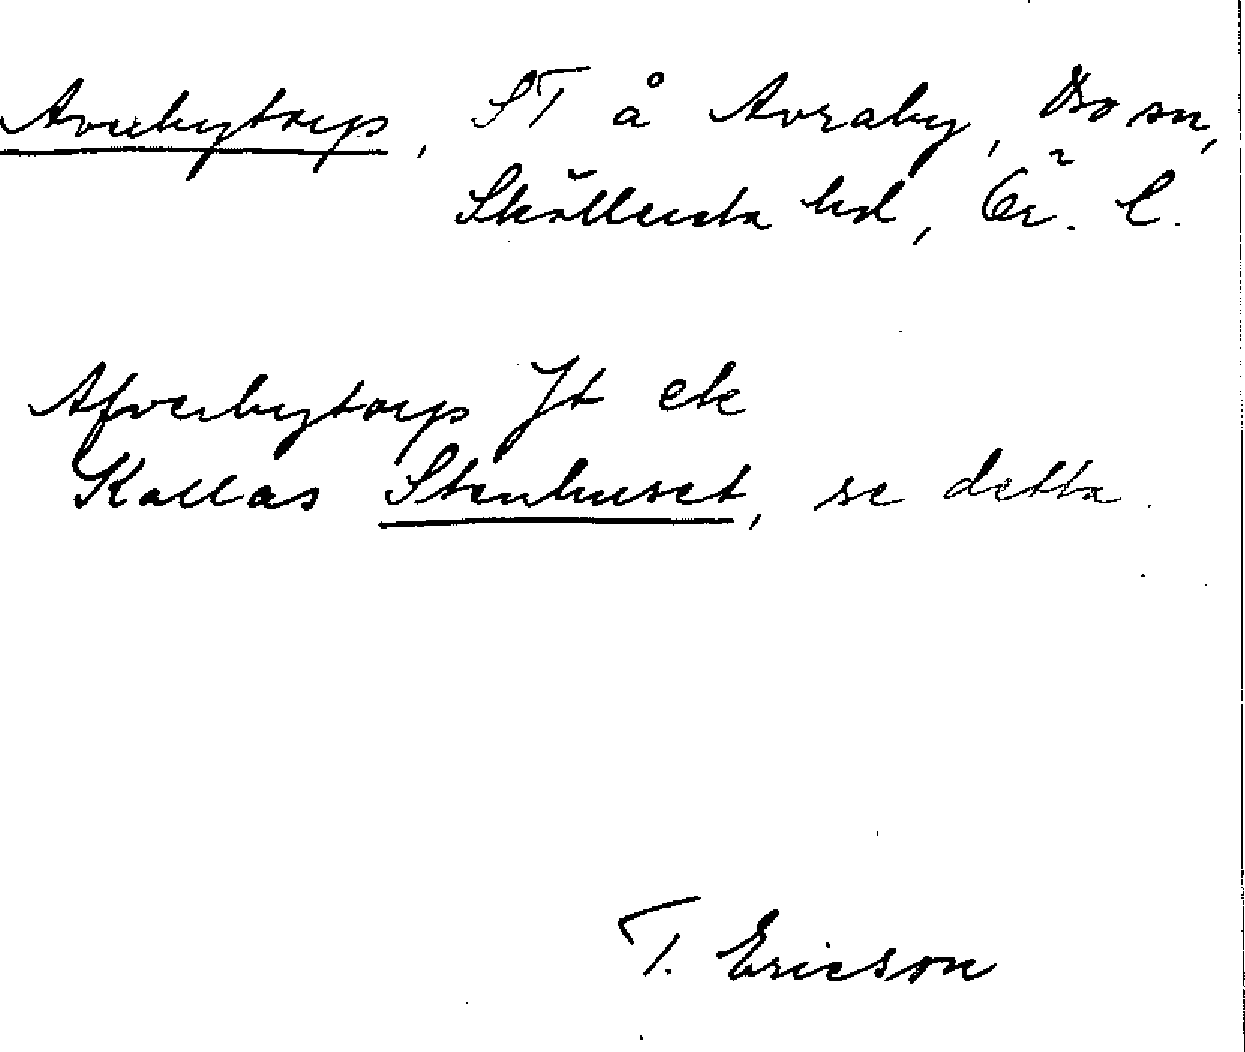 Averbytorp, ST å Avraby, Bo sn,
Sköllersta hd, Ör. l.
Afverbytorp Jt ek
Kallas Stenhuset, se detta.
T. Ericson